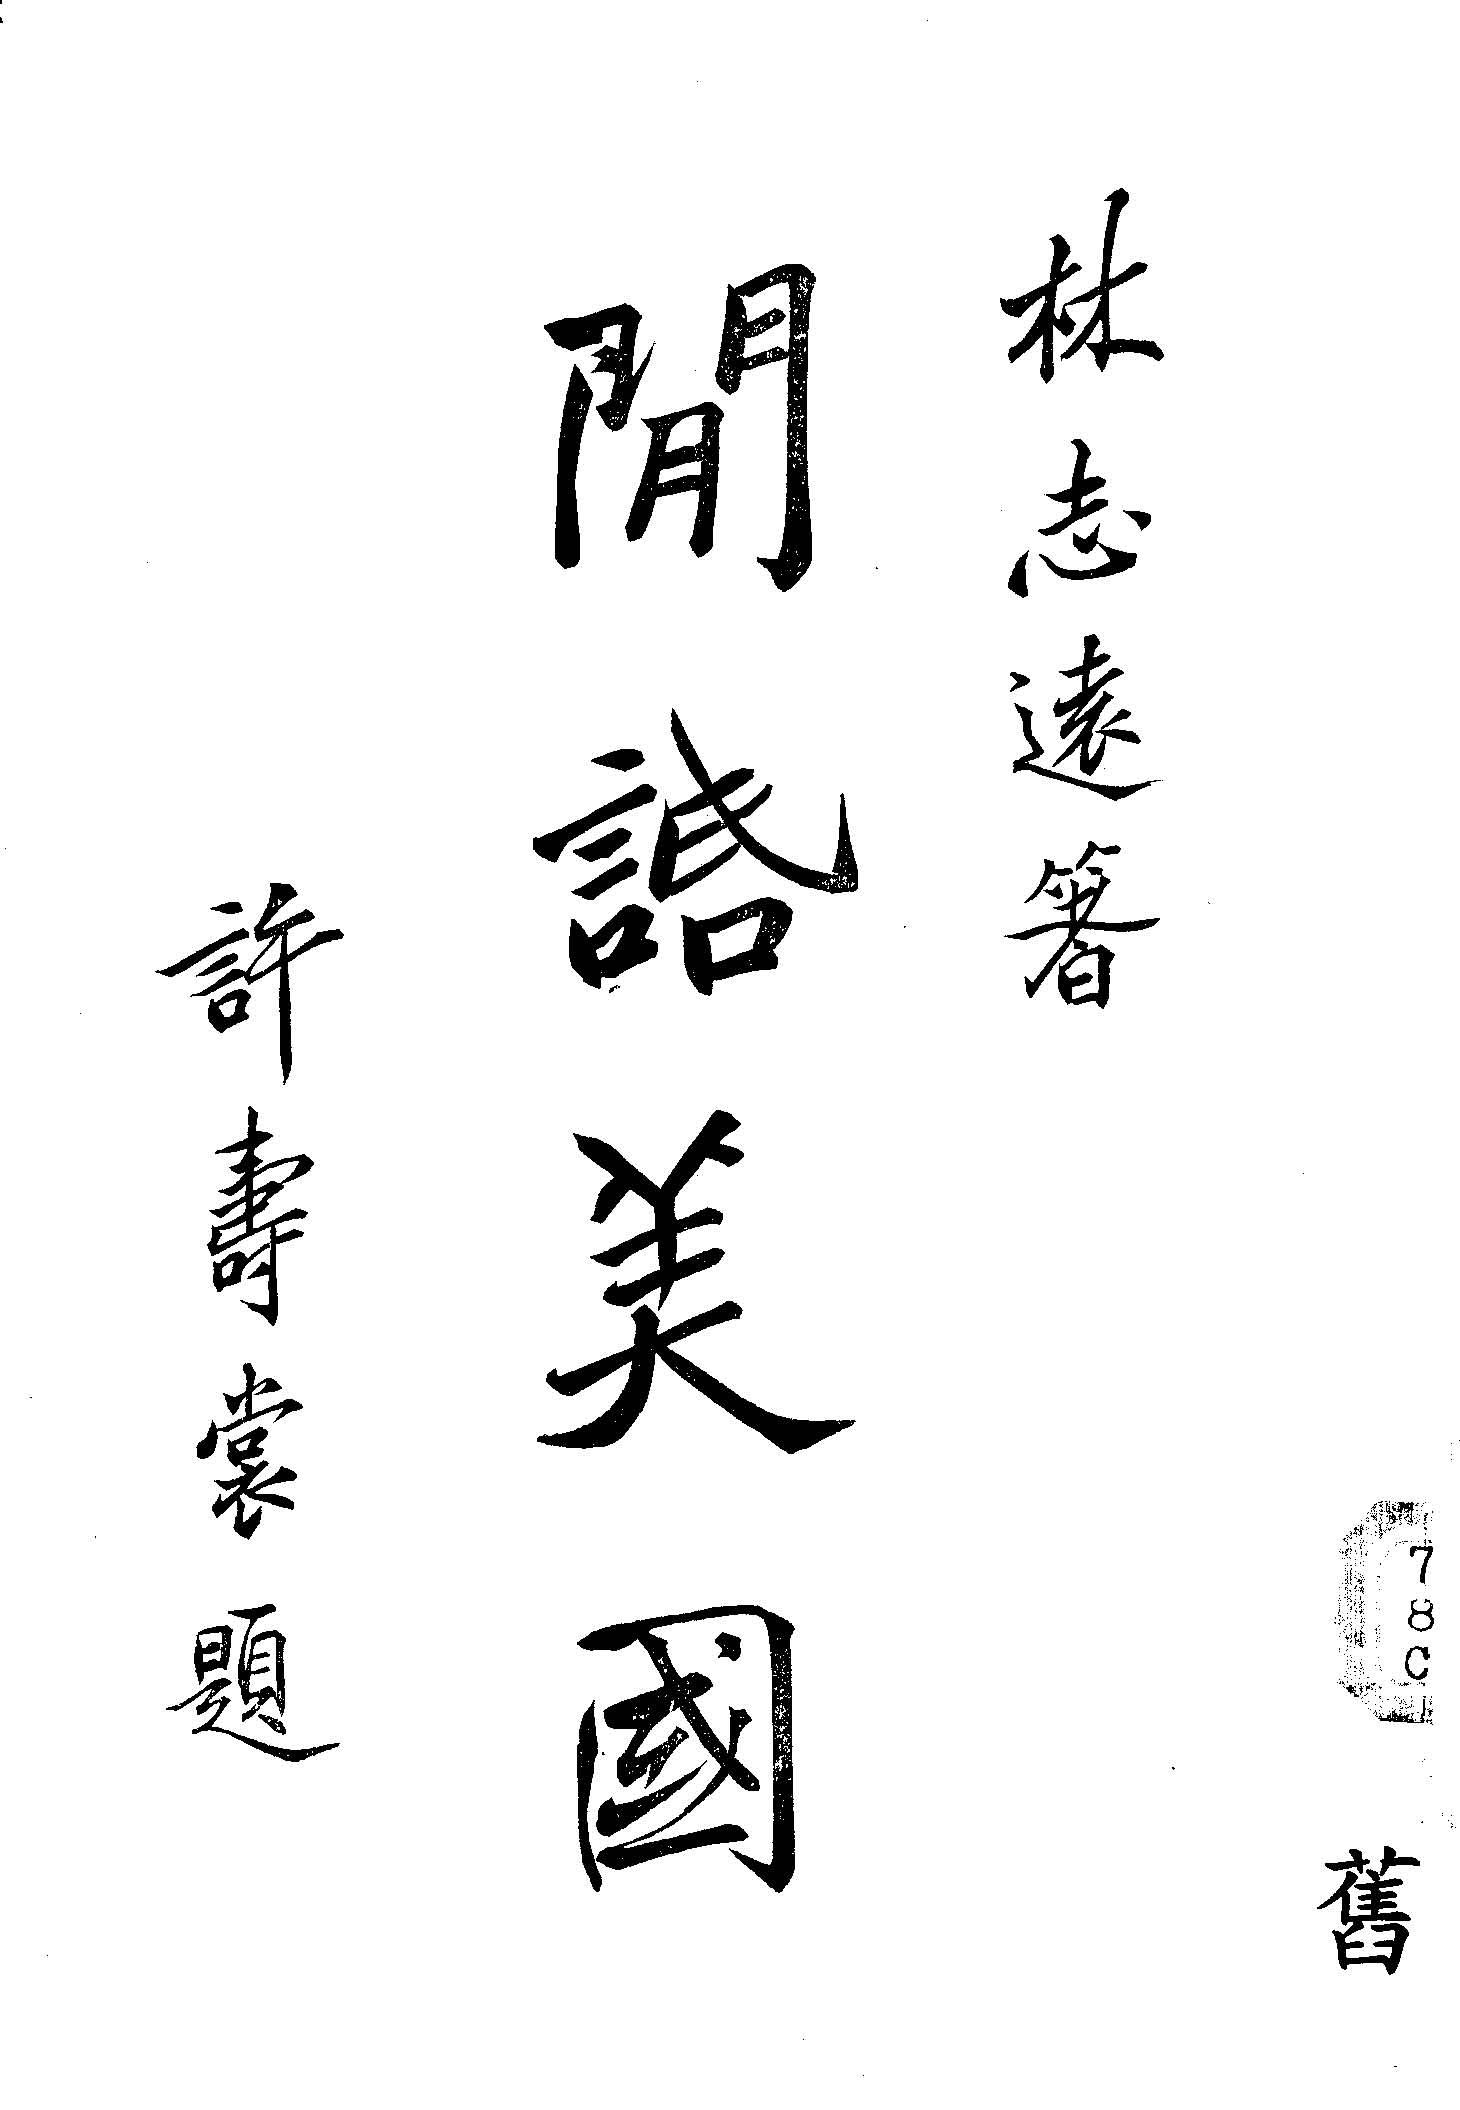 林志遠箸
閒話美國
許壽裳題
78C
舊